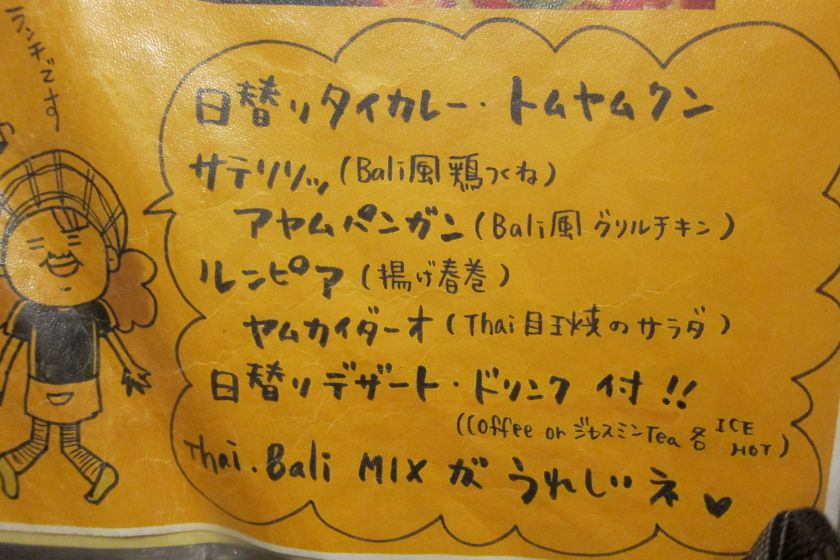 ランチです
日替りタイカレー・トムヤムクン
サテリリッ(Bali風鶏つくね)
アヤムパンガン(Bali風グリルチキン)
ルンピア(揚げ春巻)
ヤムカイダーオ(Thai目玉焼のサラダ)
日替りデザート・ドリンク付!!
(Coffee or ジャスミンTea 各 ICE HOT)
Thai.Bali MIXがうれしいネ♥